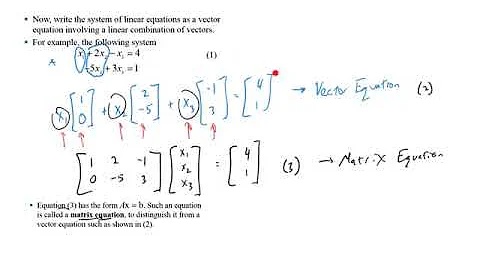 • Now, write the system of linear equations as a vector
equation involving a linear combination of vectors.
• For example, the following system
x₁ + 2x₂ − x₃ = 4
−5x₂ + 3x₃ = 1 (1)
x₁ [1 0] + x₂ [2 -5] + x₃ [-1 3] = [4 1] → Vector Equation (2)
[1 2 -1 0 -5 3] [x₁ x₂ x₃] = [4 1] (3) → Matrix Equation
• Equation (3) has the form Ax = b. Such an equation
is called a matrix equation, to distinguish it from a
vector equation such as shown in (2).